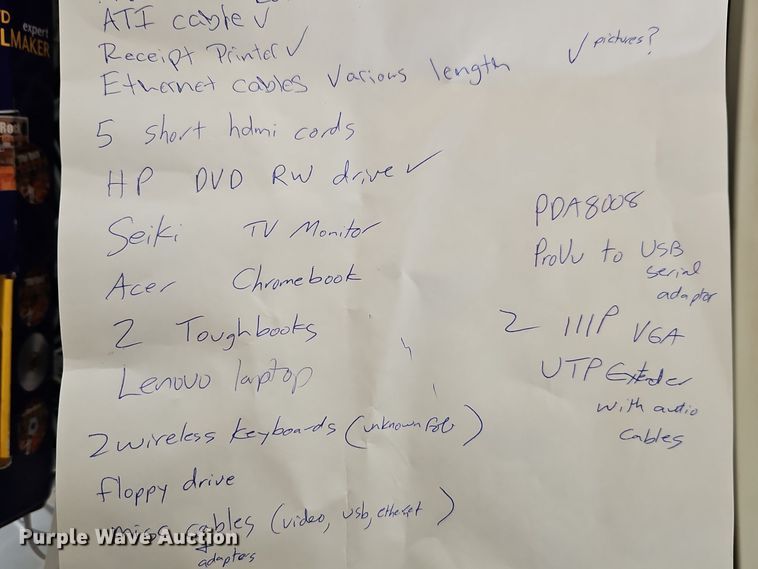 expert
LMAKER
ATI cable ✓
Receipt Printer ✓
Ethernet cables various length ✓ pictures?
5 short hdmi cords
HP DVD RW drive ✓
Seiki TV Monitor
Acer Chromebook
2 Toughbooks
Lenovo laptop
2 wireless keyboards (unknown)
floppy drive
misc cables (video, usb, ethernet)
adapters
PDA8008
ProVu to USB
serial
adaptor
2 111P VGA
UTP Extender
with audio
cables
Purple Wave Auction